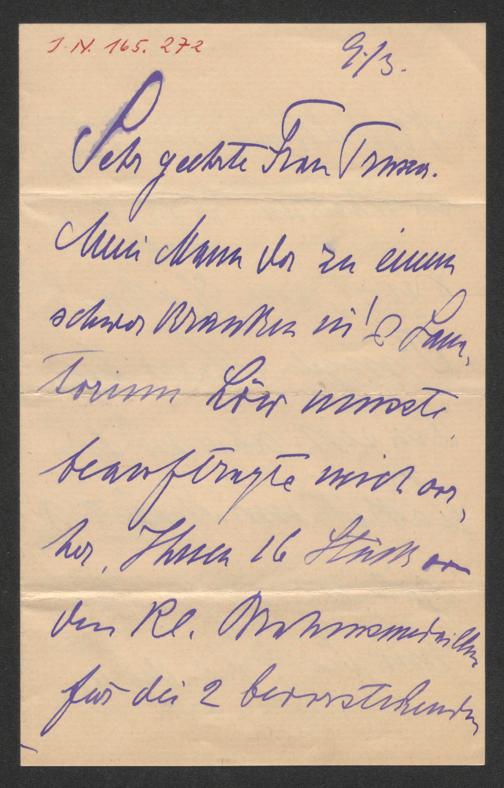 J.N. 165.272
9./3.
Sehr geehrte Frau Truxa.
Mein Mann der zu einem
schwer Kranken in's Sana-
torium Löw musste,
beauftragte mich vor-
her, Ihnen 16 Stück von
den kl. Brahmsmedaillen
für die 2 bevorstehenden